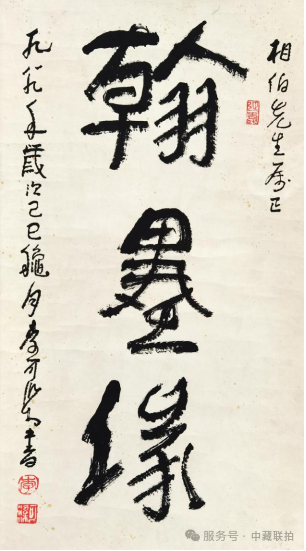 相伯先生属正
翰墨緣
一九八九年歲次己巳龝月李可染書
服务号 · 中藏联拍